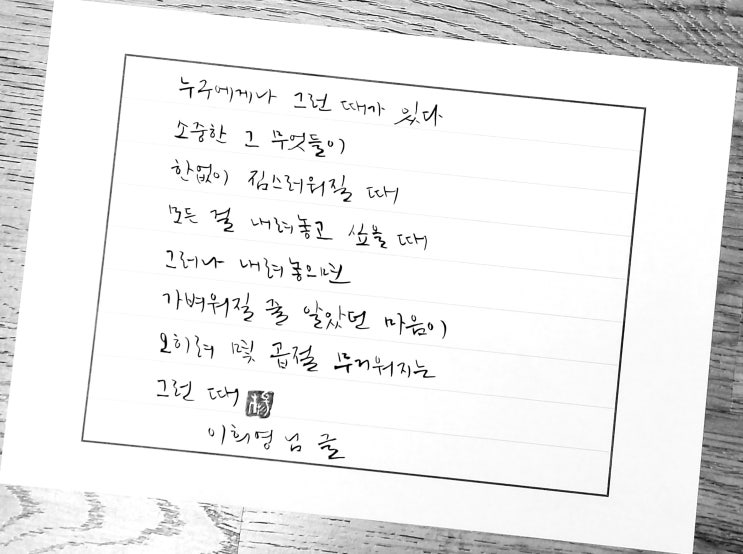 누구에게나 그런 때가 있다
소중한 그 무엇들이
한없이 짐스러워질 때
모든 걸 내려놓고 싶을 때
그러나 내려놓으면
가벼워질 줄 알았던 마음이
오히려 몇 곱절 무거워지는
그런 때
이희영 님 글